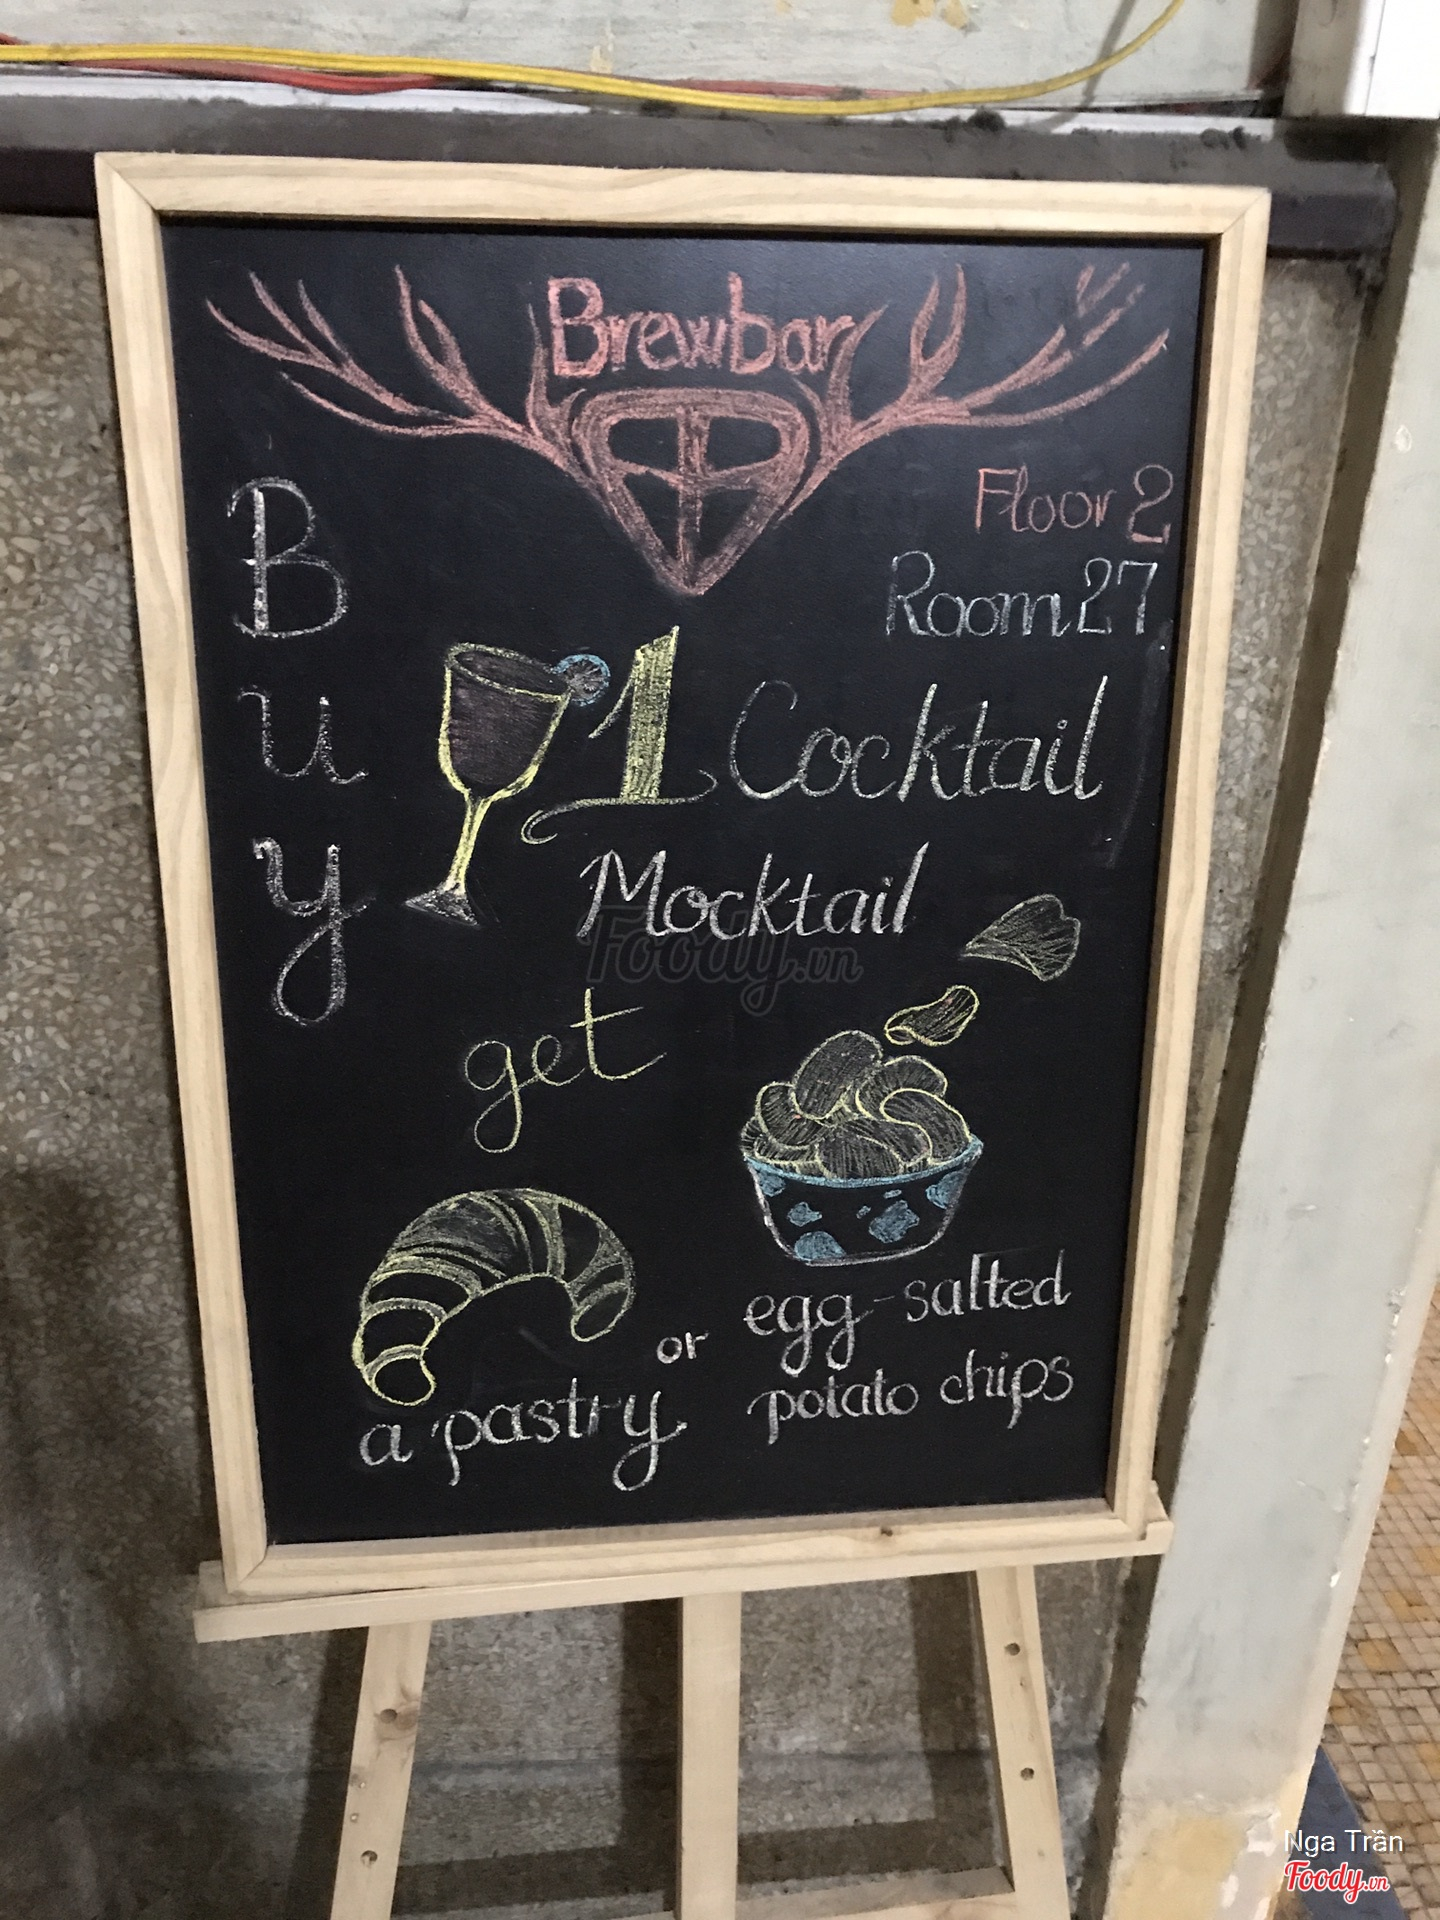 Brewbar
Floor 2
Room 27
Buy
1 Cocktail
Mocktail
get
a pastry
or
egg-salted
potato chips
Foody.vn
Nga Trần
Foody.vn